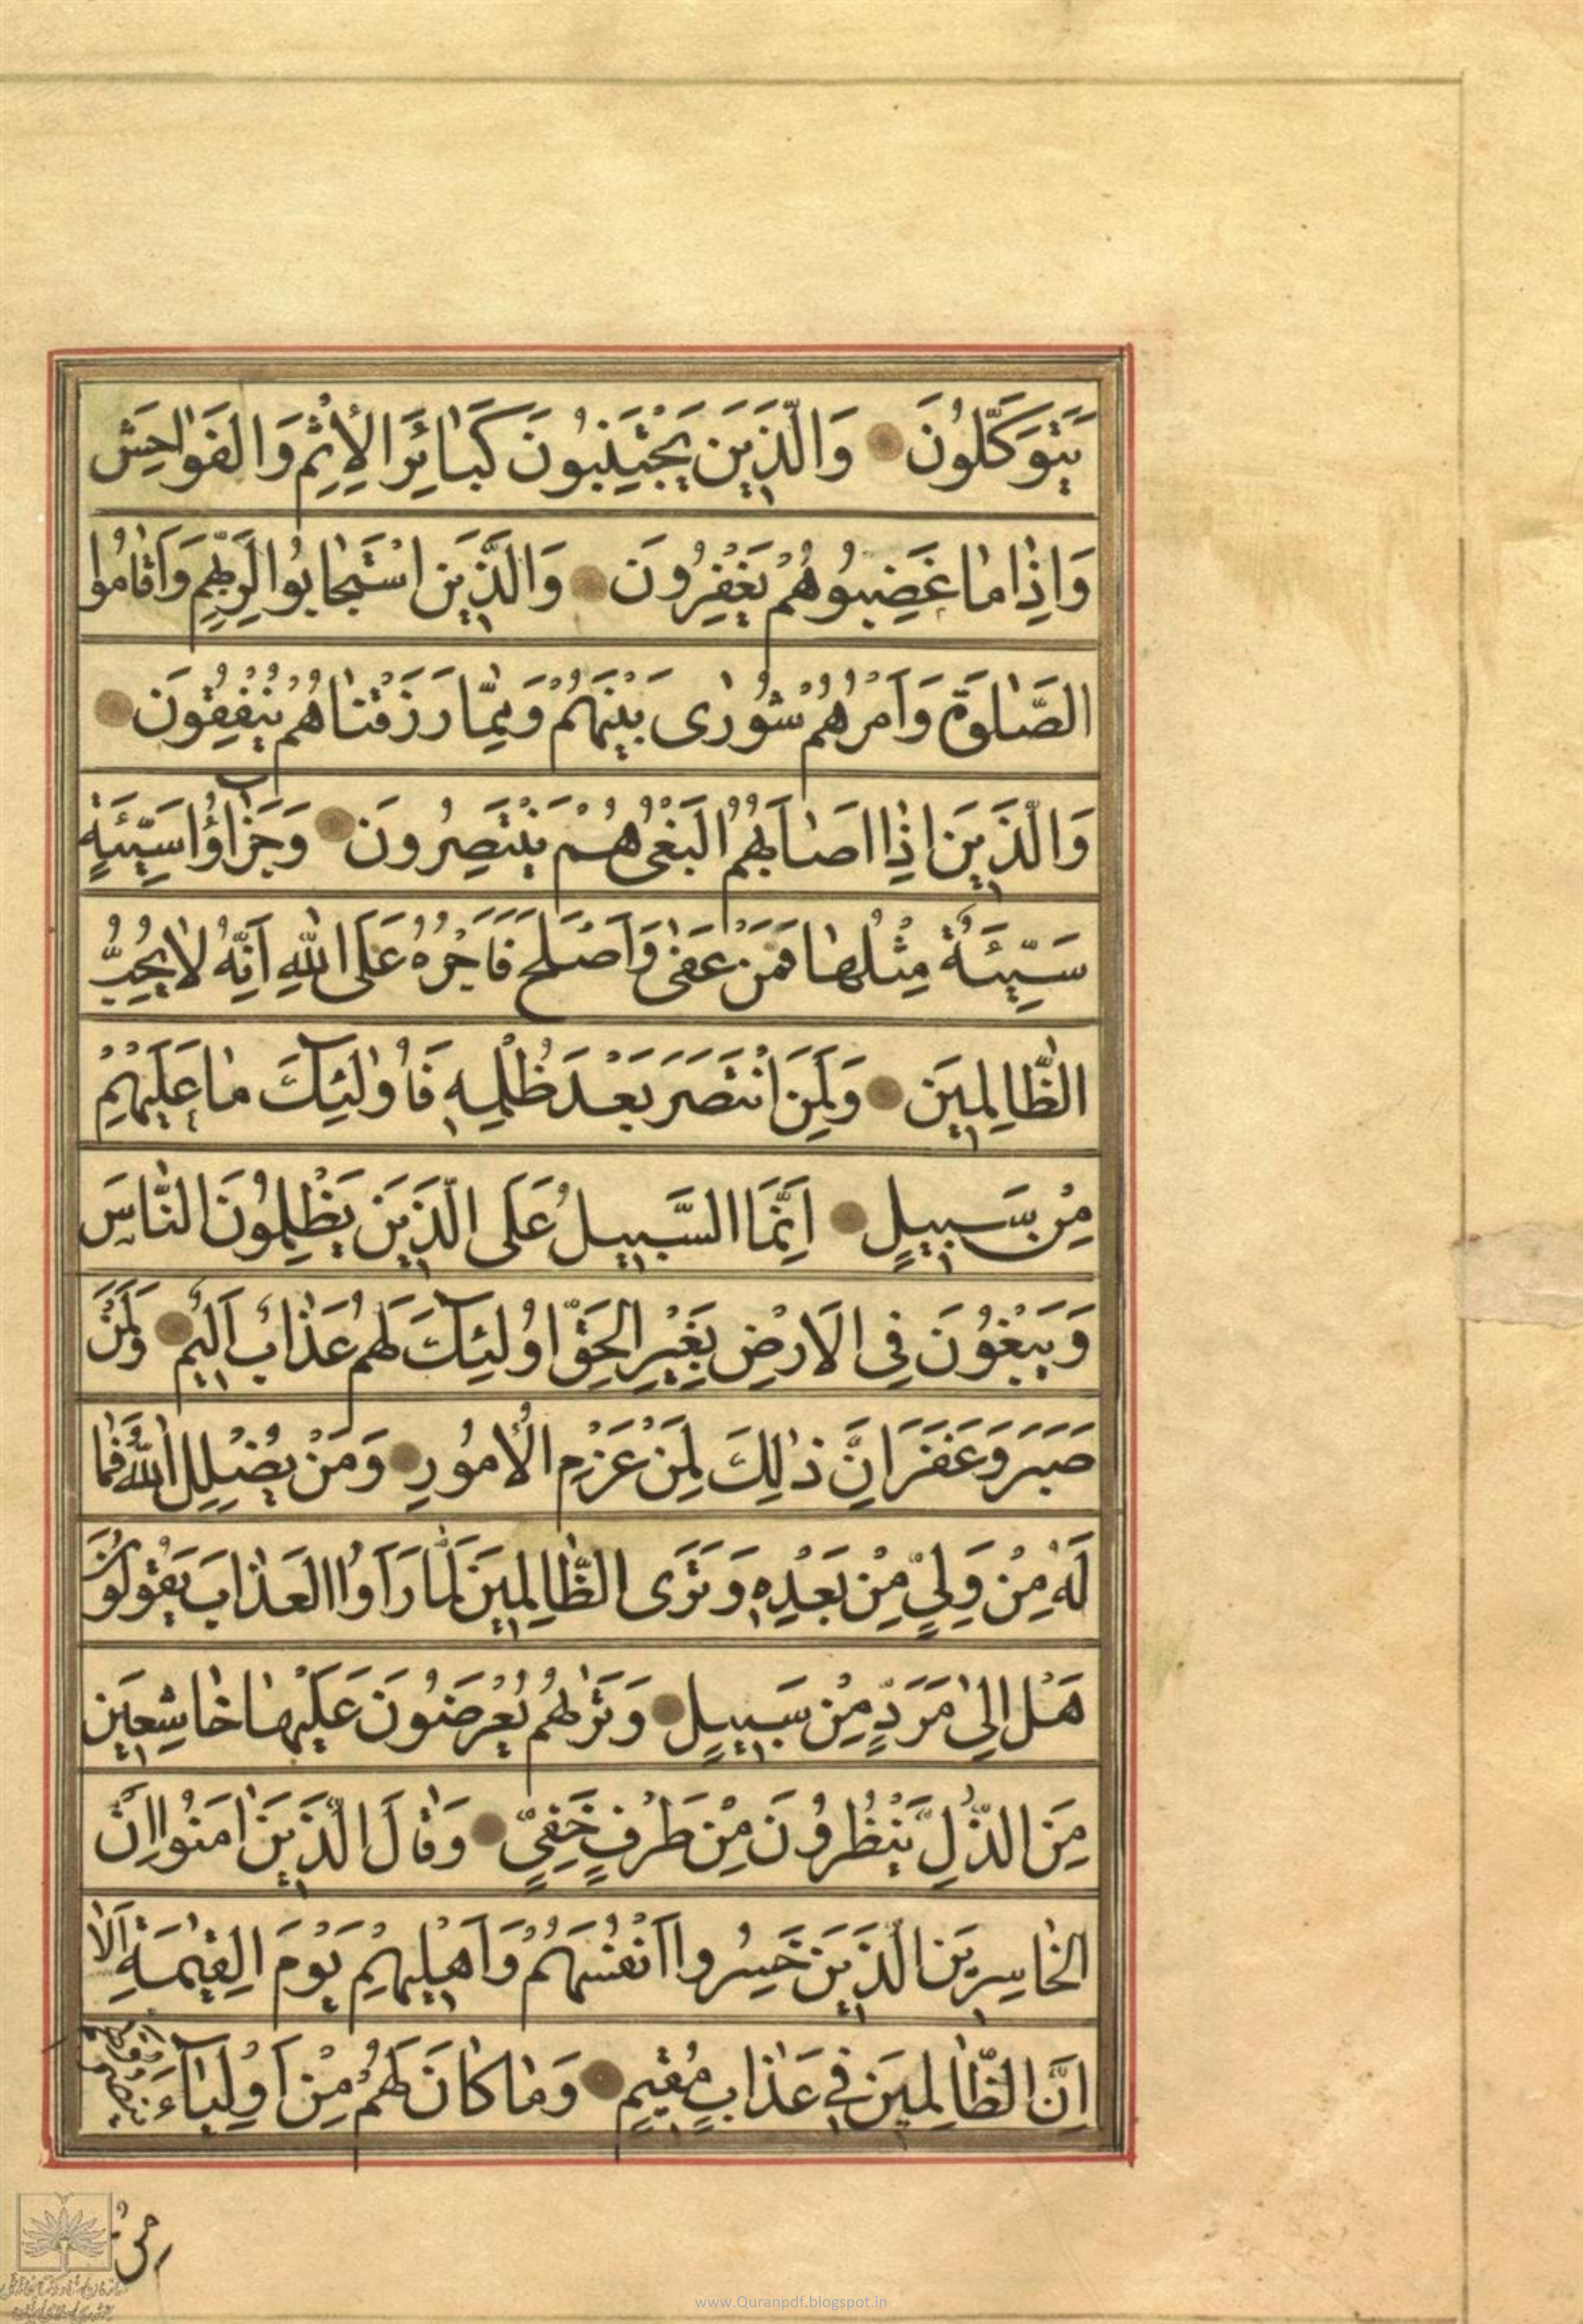 يَتَوَكَّلُونَ وَالَّذِينَ يَجْتَنِبُونَ كَبَائِرَ الْإِثْمِ وَالْفَوَاحِشَ
وَإِذَا مَا غَضِبُوا هُمْ يَغْفِرُونَ وَالَّذِينَ اسْتَجَابُوا لِرَبِّهِمْ وَأَقَامُوا
الصَّلٰوةَ وَأَمْرُهُمْ شُورٰى بَيْنَهُمْ وَمِمَّا رَزَقْنَاهُمْ يُنْفِقُونَ
وَالَّذِينَ إِذَا أَصَابَهُمُ الْبَغْيُ هُمْ يَنْتَصِرُونَ وَجَزَاؤُا سَيِّئَةٍ
سَيِّئَةٌ مِثْلُهَا فَمَنْ عَفٰى وَأَصْلَحَ فَأَجْرُهُ عَلَى اللّٰهِ اِنَّهُ لَا يُحِبُّ
الظَّالِمِينَ وَلَمَنِ انْتَصَرَ بَعْدَ ظُلْمِهِ فَأُولٰئِكَ مَا عَلَيْهِمْ
مِنْ سَبِيلٍ اِنَّمَا السَّبِيلُ عَلَى الَّذِينَ يَظْلِمُونَ النَّاسَ
وَيَبْغُونَ فِي الْأَرْضِ بِغَيْرِ الْحَقِّ أُولٰئِكَ لَهُمْ عَذَابٌ أَلِيمٌ وَلَمَنْ
صَبَرَ وَغَفَرَ اِنَّ ذٰلِكَ لَمِنْ عَزْمِ الْأُمُورِ وَمَنْ يُضْلِلِ اللّٰهُ فَمَا
لَهُ مِنْ وَلِيٍّ مِنْ بَعْدِهِ وَتَرَى الظَّالِمِينَ لَمَّا رَأَوُا الْعَذَابَ يَقُولُونَ
هَلْ إِلٰى مَرَدٍّ مِنْ سَبِيلٍ وَتَرٰىهُمْ يُعْرَضُونَ عَلَيْهَا خَاشِعِينَ
مِنَ الذُّلِّ يَنْظُرُونَ مِنْ طَرْفٍ خَفِيٍّ وَقَالَ الَّذِينَ اٰمَنُوا اِنَّ
الْخَاسِرِينَ الَّذِينَ خَسِرُوا أَنْفُسَهُمْ وَأَهْلِيهِمْ يَوْمَ الْقِيٰمَةِ أَلَا
اِنَّ الظَّالِمِينَ فِي عَذَابٍ مُقِيمٍ وَمَا كَانَ لَهُمْ مِنْ أَوْلِيَآءَ
www.Quranpdf.blogspot.in